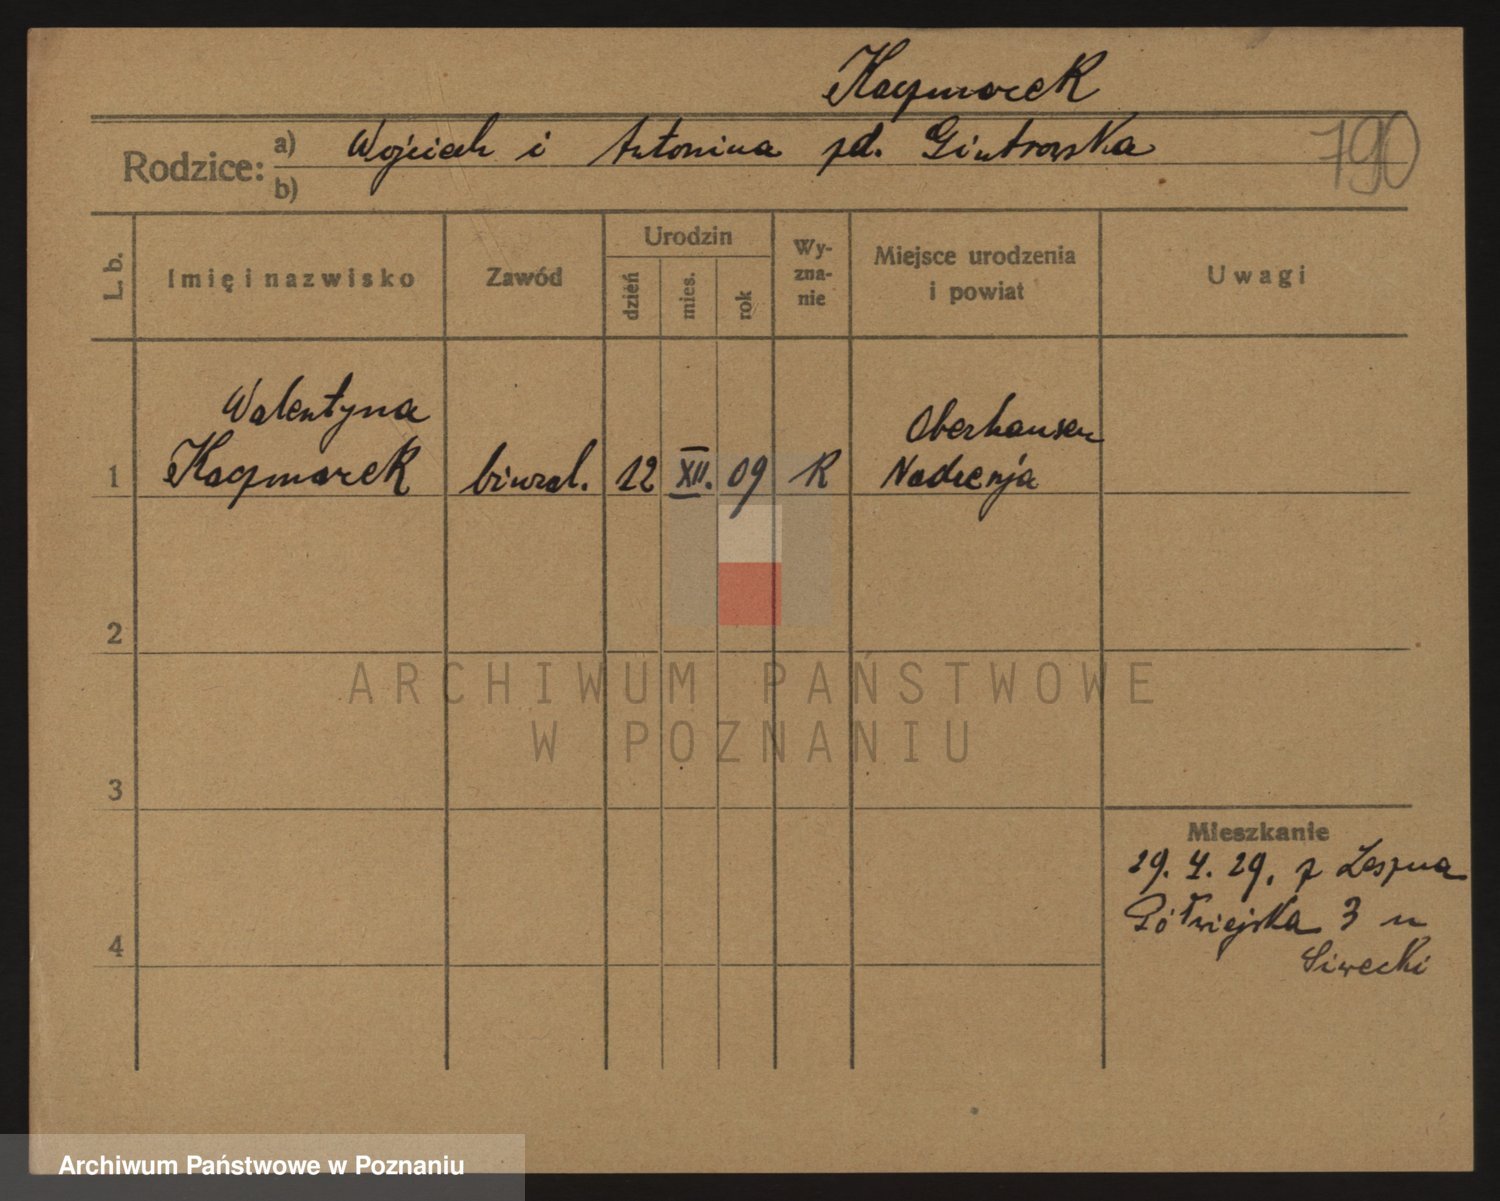 Kaczmarek
790
Rodzice:
a) Wojciech i Antonina zd. Gintrowska
b)
L. b.
Imię i nazwisko
Zawód
Urodzin
dzień
mies.
rok
Wy-
zna-
nie
Miejsce urodzenia
i powiat
Uwagi
Walentyna
1 Kaczmarek biural. 12 XII. 09 R
Oberhausen
Nadrenja
2
3
4
Mieszkanie
29. 4. 29. z Leszna
Półwiejska 3 u
Siwecki
ARCHIWUM PAŃSTWOWE
W POZNANIU
Archiwum Państwowe w Poznaniu